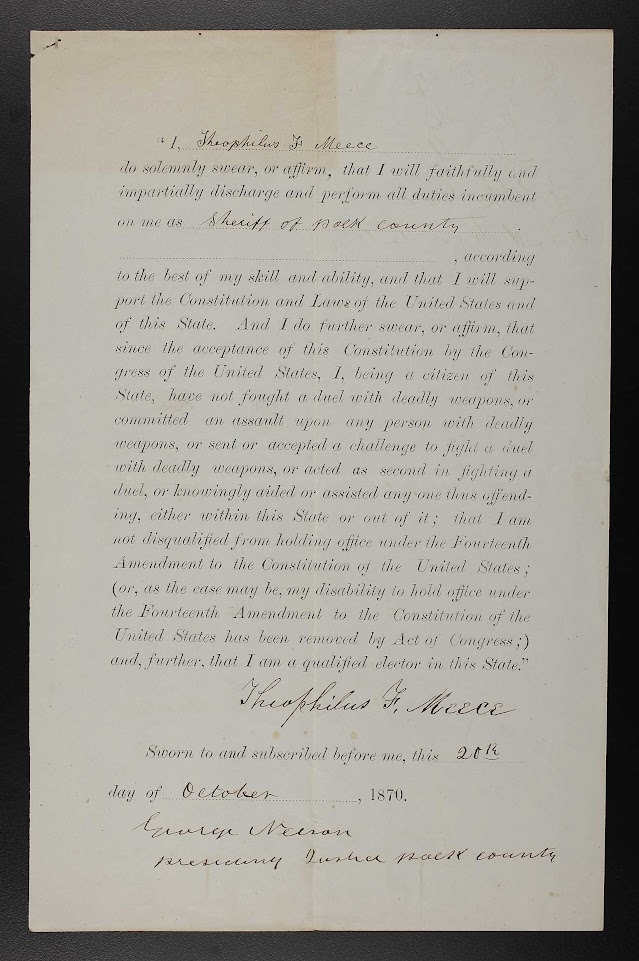 "I, Theophilus F. Meece
do solemnly swear, or affirm, that I will faithfully and
impartially discharge and perform all duties incumbent
on me as Sheriff of polk county
, according
to the best of my skill and ability, and that I will sup-
port the Constitution and Laws of the United States and
of this State. And I do further swear, or affirm, that
since the acceptance of this Constitution by the Con-
gress of the United States, I, being a citizen of this
State, have not fought a duel with deadly weapons, or
committed an assault upon any person with deadly
weapons, or sent or accepted a challenge to fight a duel
with deadly weapons, or acted as second in fighting a
duel, or knowingly aided or assisted any one thus offend-
ing, either within this State or out of it; that I am
not disqualified from holding office under the Fourteenth
Amendment to the Constitution of the United States;
(or, as the case may be, my disability to hold office under
the Fourteenth Amendment to the Constitution of the
United States has been removed by Act of Congress;)
and, further, that I am a qualified elector in this State."
Theophilus F. Meece
Sworn to and subscribed before me, this 20th
day of October, 1870.
George Nelson
presiding Justice polk county